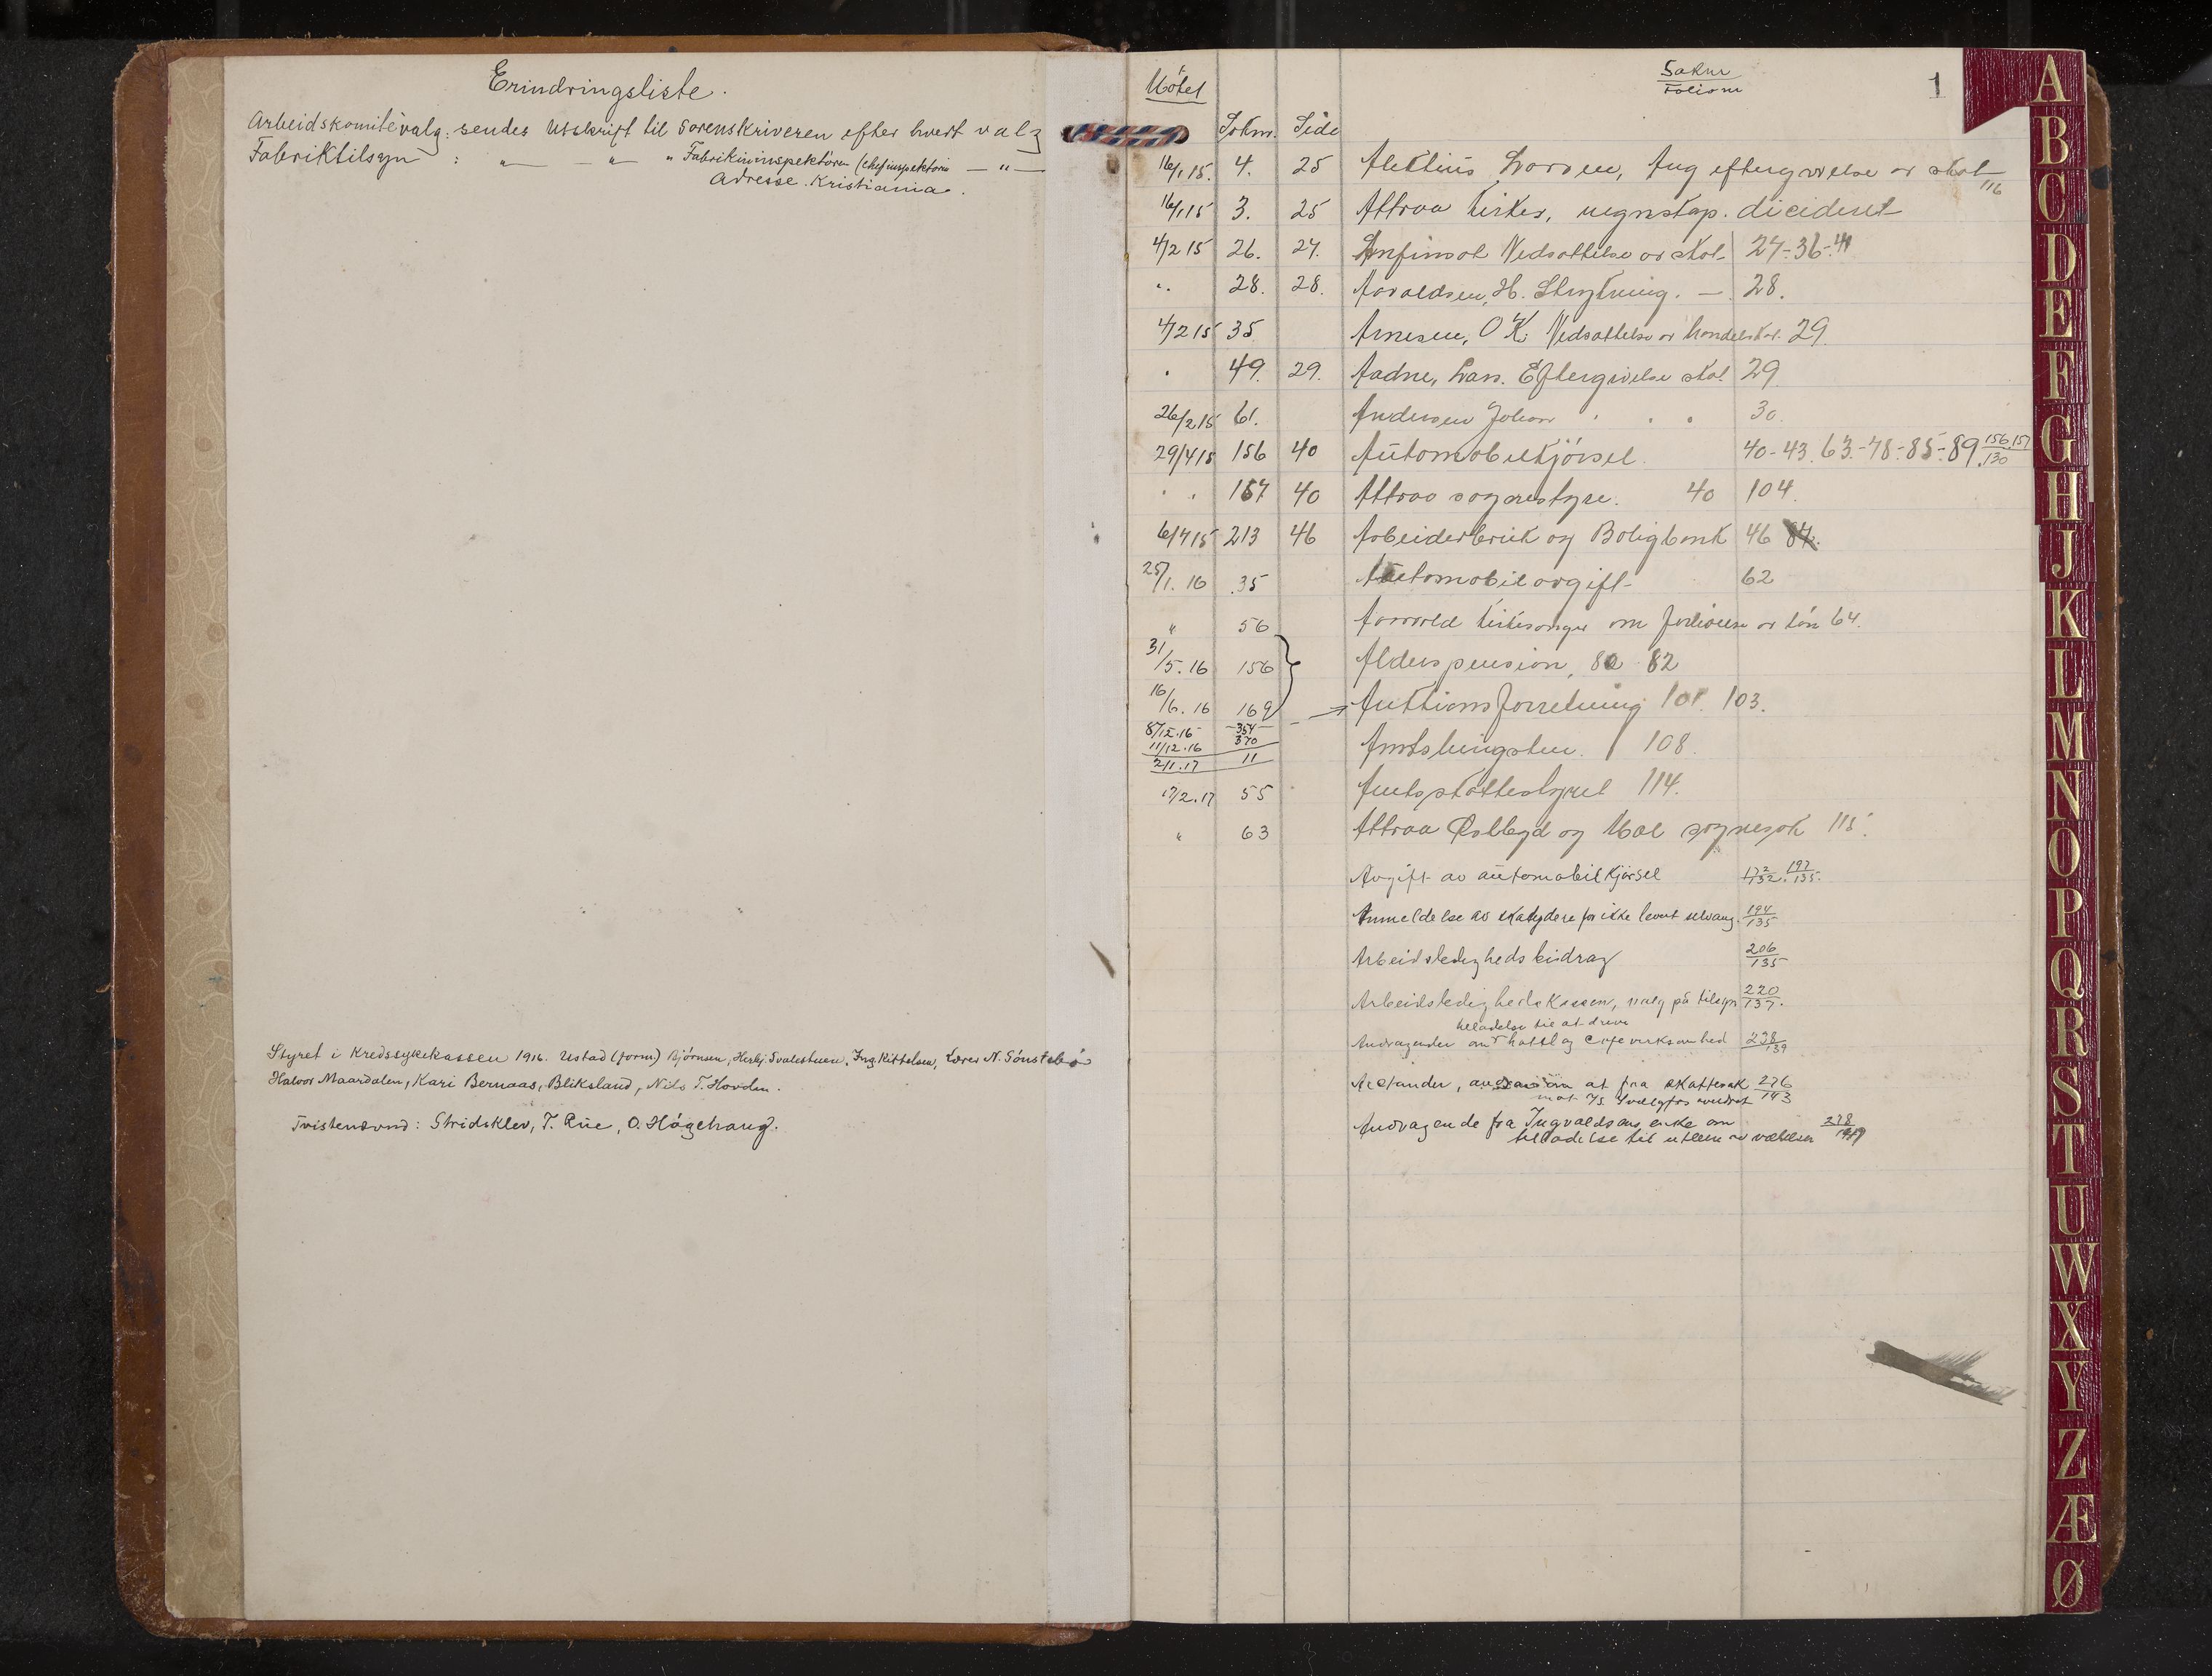 Erindringsliste.
Arbeidskomitévalg: sendes Utskrift til Sorenskriveren efter hvert valg
Fabriktilsyn : " — " " Fabrikininspektören (chefinspektören — " —
Adresse Kristiania.
Styret i Kredssykekassen 1916. Ustad (form) Björnsen, Herbj. Svalestuen, Ing. Kittelsen, Lærer N. Gönstebö
Halvor Maardalen, Kari Bernaas, Bliksland, Nils T. Hovden.
Tvistensvnd: Stridsklev, T. Rue, O. Högehaug.
Mötet Sakur
Foliour 1
Sakn. Side
16/1 15. 4. 25 Larsen, Aug eftergivelse av skat 116
16/1 15 3. 25 Attraa kirkes, regnskap. decideret
4/2 15 26. 27. Nedsættelse av skat 27-36-41
" 28. 28. Aaraldsen, H. Strykning. — 28.
4/2 15 35 Arnesen, O K. Nedsættelse av handelskat. 29.
" 49. 29. Aadne, Lars. Eftergivelse skat 29
26/2 15 61. Andersen Johan " " " 30.
29/4 15 156 40 Automobilkjörsel. 40-43. 63.-78-85-89. 156.157/130
" " 157 40 Attraa sognestyre. 40 104.
6/7 15 213 46 Arbeiderbruk og Boligbank 46 84.
25/1. 16 35 Automobilavgift 62
" 56 kirkesanger om forhöielse av lön 64.
31/5. 16 156 Alderspension, 82 82
16/6. 16 169 Auktionsforretning 101. 103.
8/12.16 354
11/12.16 370 Amtshingsten. 108.
2/1.17 11
17/2.17 55 Amtsskattestyret 114.
" 63 Attraa Östbygd og Mæl sognesak 115.
Avgift av automobilkjörsel 172/132. 197/135.
Anmeldelse av skatydere for ikke levert selvang. 194/135
Arbeidsledigheds bidrag 206/135
Arbeidsledighedskassen, valg på tilsyn 220/137.
tilladelse til at drive
Andragender om hotel og Cafe virksomhed 238/139
at fra skattesak 276/143
mot A/S Svælgfos
Andragende fra Ingvaldsens enke om 278
tilladelse til utleie av værelser
A
B
C
D
E
F
G
H
J
K
L
M
N
O
P
Q
R
S
T
U
W
X
Y
Z
Æ
Ø